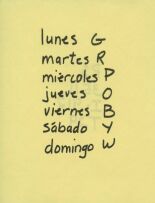 lunes G
martes R
miércoles P
jueves O
viernes B
sábado Y
domingo W